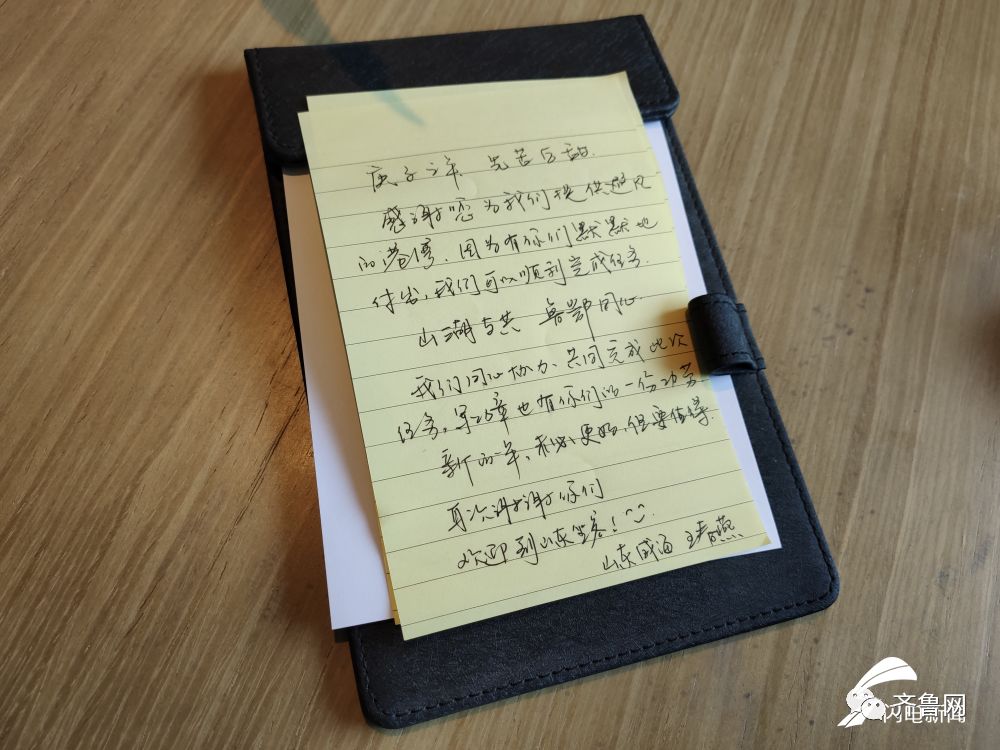 庚子之年 先苦后甜.
感谢您为我们提供避风
的港湾，因为有你们默默地
付出，我们可以顺利完成任务.
山湖与共 鲁鄂同心.
我们同心协力、共同完成此次
任务，军功章也有你们的一份功劳.
新的一年，未必更好，但要值得.
再次谢谢你们
欢迎到山东坐客！
山东威海 王春燕
齐鲁网
闪电新闻